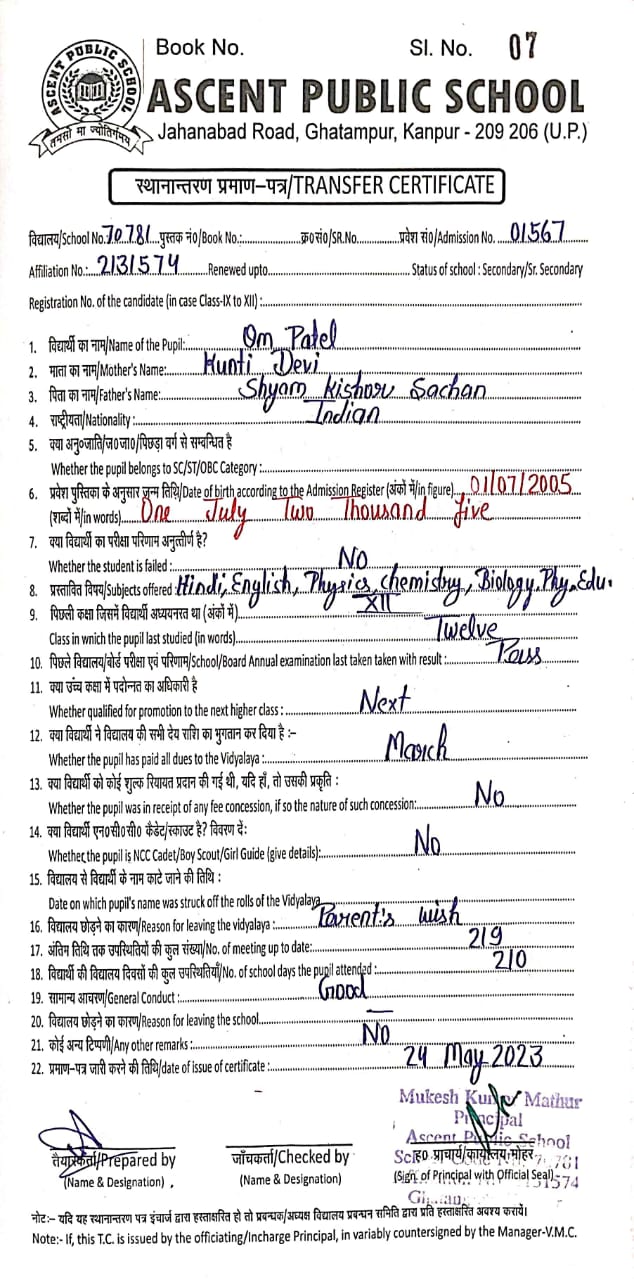 ASCENT PUBLIC SCHOOL
तमसो मा ज्योतिर्गमय
Book No. Sl. No. 07
ASCENT PUBLIC SCHOOL
Jahanabad Road, Ghatampur, Kanpur - 209 206 (U.P.)
स्थानान्तरण प्रमाण-पत्र/TRANSFER CERTIFICATE
विद्यालय/School No. 70781 पुस्तक नं०/Book No.: क्र०सं०/SR.No. प्रवेश सं०/Admission No. 01567
Affiliation No.: 2131574 Renewed upto. Status of school : Secondary/Sr. Secondary
Registration No. of the candidate (in case Class-IX to XII) :
1. विद्यार्थी का नाम/Name of the Pupil: Om Patel
2. माता का नाम/Mother's Name: Kunti Devi
3. पिता का नाम/Father's Name: Shyam Kishor Sachan
4. राष्ट्रीयता/Nationality : Indian
5. क्या अनु०जाति/ज०जा०/पिछड़ा वर्ग से सम्वन्धित है
Whether the pupil belongs to SC/ST/OBC Category :
6. प्रवेश पुस्तिका के अनुसार जन्म तिथि/Date of birth according to the Admission Register (अंकों में/in figure) 01/07/2005
(शब्दों में/in words) One July Two Thousand five
7. क्या विद्यार्थी का परीक्षा परिणाम अनुत्तीर्ण है?
Whether the student is failed : No
8. प्रस्तावित विषय/Subjects offered Hindi, English, Physics, chemistry, Biology, Phy. Edu.
9. पिछली कक्षा जिसमें विद्यार्थी अध्ययनरत था (अंकों में) XII
Class in wnich the pupil last studied (in words) Twelve
10. पिछले विद्यालय/बोर्ड परीक्षा एवं परिणाम/School/Board Annual examination last taken taken with result : Pass
11. क्या उच्च कक्षा में पदोन्नत का अधिकारी है
Whether qualified for promotion to the next higher class : Next
12. क्या विद्यार्थी ने विद्यालय की सभी देय राशि का भुगतान कर दिया है :-
Whether the pupil has paid all dues to the Vidyalaya : March
13. क्या विद्यार्थी को कोई शुल्क रियायत प्रदान की गई थी, यदि हाँ, तो उसकी प्रकृति :
Whether the pupil was in receipt of any fee concession, if so the nature of such concession: No
14. क्या विद्यार्थी एन०सी०सी० कैडेट/स्काउट है? विवरण दें:
Whether,the pupil is NCC Cadet/Boy Scout/Girl Guide (give details): No
15. विद्यालय से विद्यार्थी के नाम काटे जाने की तिथि :
Date on which pupil's name was struck off the rolls of the Vidyalaya
16. विद्यालय छोड़ने का कारण/Reason for leaving the vidyalaya : Parent's wish
17. अंतिम तिथि तक उपस्थितियों की कुल संख्या/No. of meeting up to date: 219
18. विद्यार्थी की विद्यालय दिवसों की कुल उपस्थितियाँ/No. of school days the pupil attended : 210
19. सामान्य आचरण/General Conduct : Good
20. विद्यालय छोड़ने का कारण/Reason for leaving the school —
21. कोई अन्य टिप्पणी/Any other remarks : No
22. प्रमाण-पत्र जारी करने की तिथि/date of issue of certificate : 24 May 2023
Mukesh Mathur
Principal
Ascent Public School
तैयारकर्ता/Prepared by जाँचकर्ता/Checked by ह० प्राचार्य/कार्यालय मोहर
(Name & Designation) (Name & Designation) (Sign. of Principal with Official Seal)
नोट:- यदि यह स्थानान्तरण पत्र इंचार्ज द्वारा हस्ताक्षरित हो तो प्रबन्धक/अध्यक्ष विद्यालय प्रबन्धन समिति द्वारा प्रति हस्ताक्षरित अवश्य करायें।
Note:- If, this T.C. is issued by the officiating/Incharge Principal, in variably countersigned by the Manager-V.M.C.